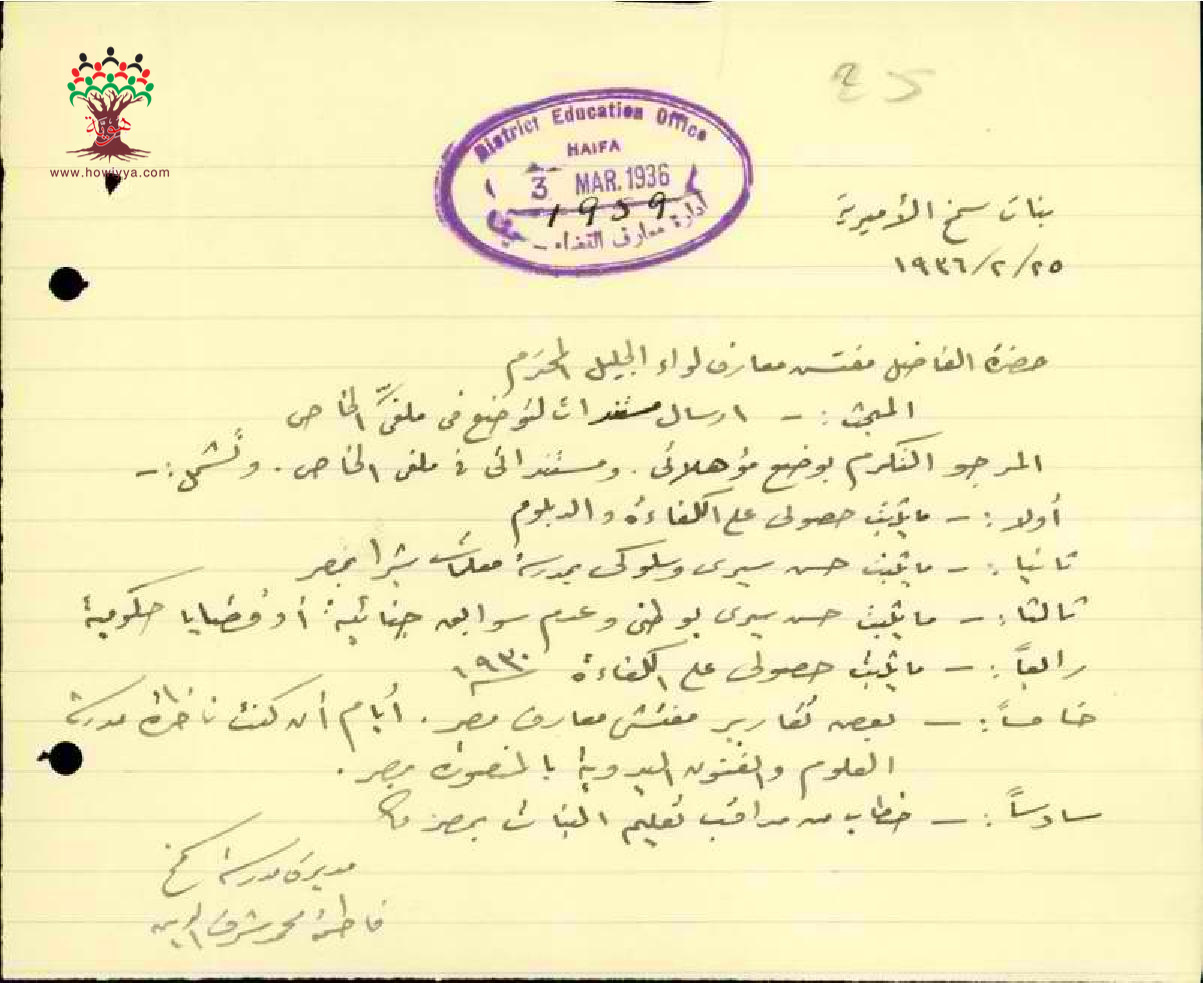 هوية
www.howiyya.com
District Education Office
HAIFA
3 MAR. 1936
1959
إدارة معارف القضاء - حيفا
بنات سمخ الأميرية
٢٥/٢/١٩٣٦
حضرة الفاضل مفتش معارف لواء الجليل المحترم
المبحث :- ارسال مستندات لتوضع في ملفي الخاص
المرجو التكرم بوضع مؤهلاتي . ومستنداتي في ملفي الخاص . وتشمل :-
أولا :- مايثبت حصولي على الكفاءة والدبلوم
ثانيا :- مايثبت حسن سيرى وسلوكي بمدرسة معلمات شبرا بمصر
ثالثا :- مايثبت حسن سيرى بوطني وعدم سوابق جنائية أو قضايا حكومية
رابعاً :- مايثبت حصولي على الكفاءة ١٩٣٠
خامساً :- بعض تقارير مفتشى معارف مصر . أيام أن كنت ناظرة مدرسة
العلوم والفنون اليدوية بالمنصورة بمصر .
سادساً :- خطاب من مراقب تعليم البنات بمصر
مديرة مدرسة سمخ
فاطمة محمد شرف الدين